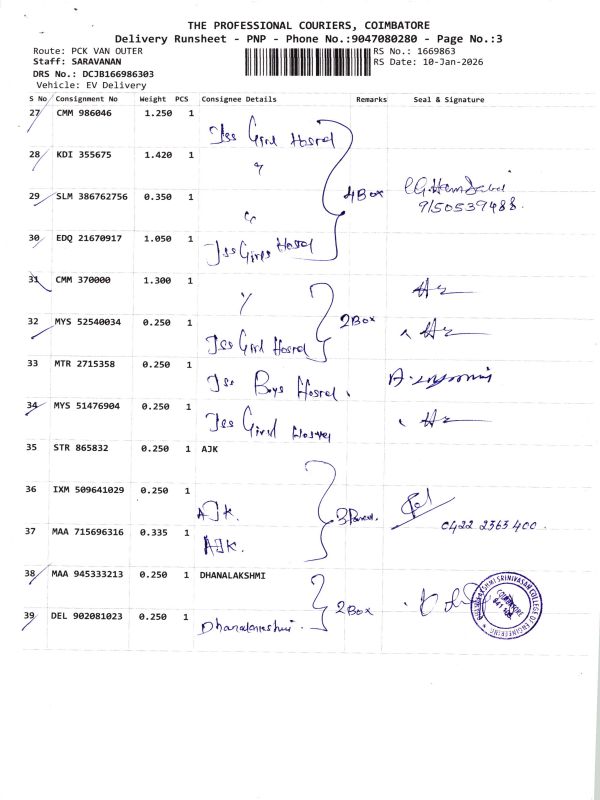 THE PROFESSIONAL COURIERS, COIMBATORE
Delivery Runsheet - PNP - Phone No.:9047080280 - Page No.:3
Route: PCK VAN OUTER RS No.: 1669863
Staff: SARAVANAN RS Date: 10-Jan-2026
DRS No.: DCJB166986303
Vehicle: EV Delivery
S No Consignment No Weight PCS Consignee Details Remarks Seal & Signature
27 CMM 986046 1.250 1 Jss Girl Hostel
28 KDI 355675 1.420 1 "
29 SLM 386762756 0.350 1 " 4 Box
9150539488
30 EDQ 21670917 1.050 1 Jss Girls Hostel
31 CMM 370000 1.300 1 "
32 MYS 52540034 0.250 1 Jss Girl Hostel 2 Box
33 MTR 2715358 0.250 1 Jss Boys Hostel
34 MYS 51476904 0.250 1 Jss Girl Hostel
35 STR 865832 0.250 1 AJK
36 IXM 509641029 0.250 1 AJK. 3
0422 2363 400.
37 MAA 715696316 0.335 1 AJK.
38 MAA 945333213 0.250 1 DHANALAKSHMI
39 DEL 902081023 0.250 1 Dhanalakshmi. 2 Box
DHANALAKSHMI SRINIVASAN COLLEGE OF ENGINEERING
COIMBATORE